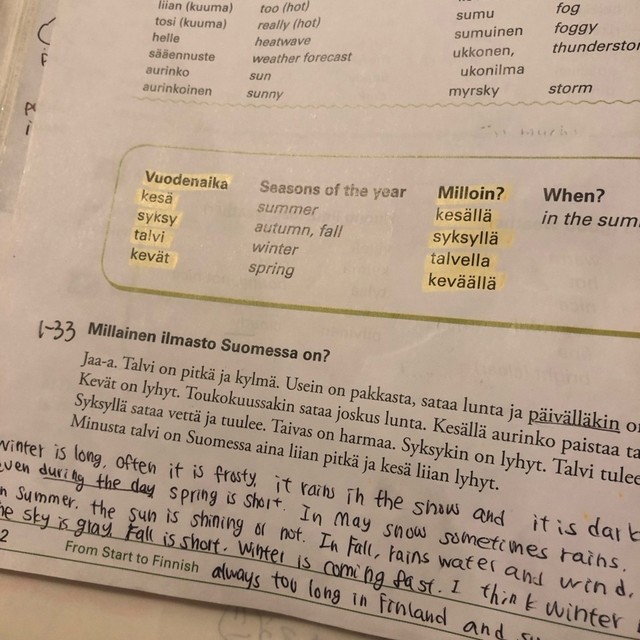 liian (kuuma) too (hot)
tosi (kuuma) really (hot)
helle heatwave
sääennuste weather forecast
aurinko sun
aurinkoinen sunny
sumu fog
sumuinen foggy
ukkonen, thunderstor
ukonilma
myrsky storm
Vuodenaika Seasons of the year Milloin? When?
kesä summer kesällä in the sum
syksy autumn, fall syksyllä
talvi winter talvella
kevät spring keväällä
1-33 Millainen ilmasto Suomessa on?
Jaa-a. Talvi on pitkä ja kylmä. Usein on pakkasta, sataa lunta ja päivälläkin o
Kevät on lyhyt. Toukokuussakin sataa joskus lunta. Kesällä aurinko paistaa ta
Syksyllä sataa vettä ja tuulee. Taivas on harmaa. Syksykin on lyhyt. Talvi tulee
Minusta talvi on Suomessa aina liian pitkä ja kesä liian lyhyt.
winter is long. often it is frosty, it rains in the snow and it is dark
even during the day spring is short. In May snow sometimes rains.
n summer, the sun is shining or not. In Fall, rains water and wind.
he sky is gray. Fall is short. Winter is coming fast. I think winter
always too long in Finland and su
2 From Start to Finnish